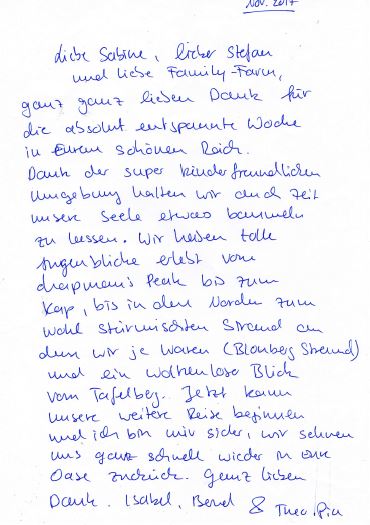 Nov. 2017
Liebe Sabine, lieber Stefan
und liebe Family-Farm,
ganz ganz lieben Dank für
die absolut entspannte Woche
in Eurem schönen Reich.
Dank der super kinderfreundlichen
Umgebung hatten wir auch Zeit
unsere Seele etwas baumeln
zu lassen. Wir haben tolle
Augenblicke erlebt vom
Chapman's Peak bis zum
Kap, bis in den Norden zum
wohl stürmischsten Strand an
dem wir je waren (Blouberg Strand)
und ein wolkenlose Blick
vom Tafelberg. Jetzt kann
unsere weitere Reise beginnen
und ich bin mir sicher, wir sehnen
uns ganz schnell wieder in eure
Oase zurück. Ganz lieben
Dank. Isabel, Bernd & Theo, Pia